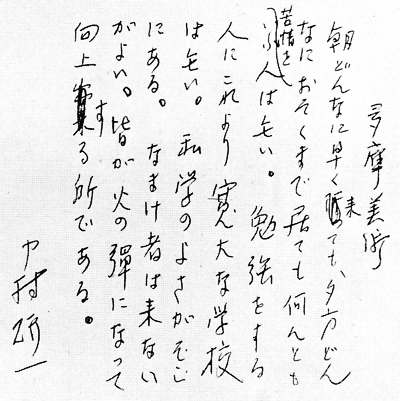 多摩美術
朝どんなに早く来ても、夕方どん
なにおそくまで居ても何んとも
苦情をいふ人は無い。勉強をする
人にこれより寛大な学校
は無い。私学のよさがそこ
にある。なまけ者は来ない
がよい。皆が火の彈になって
向上する所である。
中村研一